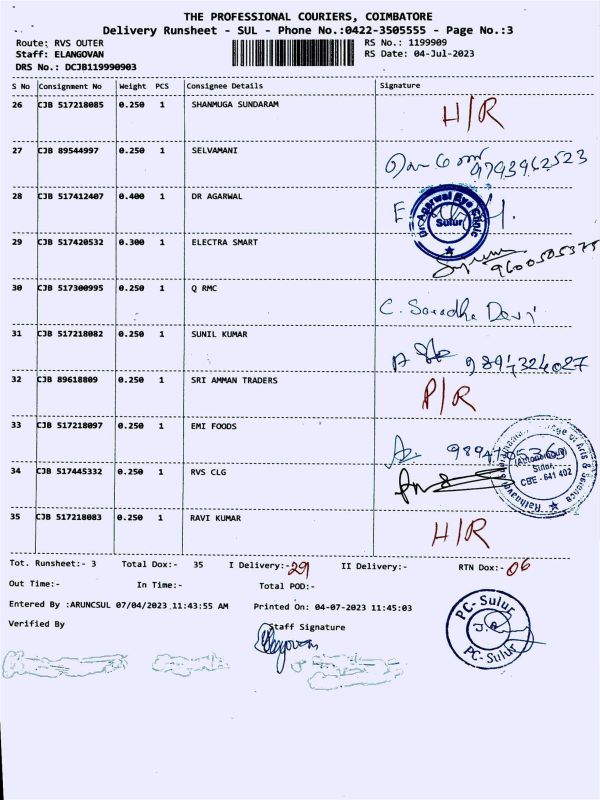 THE PROFESSIONAL COURIERS, COIMBATORE
Delivery Runsheet - SUL - Phone No.:0422-3505555 - Page No.:3
Route: RVS OUTER RS No.: 1199909
Staff: ELANGOVAN RS Date: 04-Jul-2023
DRS No.: DCJB119990903
S No Consignment No Weight PCS Consignee Details Signature
26 CJB 517218085 0.250 1 SHANMUGA SUNDARAM H/R
27 CJB 89544997 0.250 1 SELVAMANI 9793962523
28 CJB 517412407 0.400 1 DR AGARWAL Dr. Agarwal Eye Clinic Sulur
29 CJB 517420532 0.300 1 ELECTRA SMART 9600505375
30 CJB 517300995 0.250 1 Q RMC C. Saradha Devi
31 CJB 517218082 0.250 1 SUNIL KUMAR 9894324027
32 CJB 89618809 0.250 1 SRI AMMAN TRADERS P/R
33 CJB 517218097 0.250 1 EMI FOODS
34 CJB 517445332 0.250 1 RVS CLG (Autonomous) Sulur, CBE - 641 402 of Arts & Science
35 CJB 517218083 0.250 1 RAVI KUMAR H/R
Tot. Runsheet:- 3 Total Dox:- 35 I Delivery:- 29 II Delivery:- RTN Dox:- 06
Out Time:- In Time:- Total POD:-
Entered By :ARUNCSUL 07/04/2023 11:43:55 AM Printed On: 04-07-2023 11:45:03
Verified By Staff Signature
Elangovan
PC-Sulur
PC-Sulur